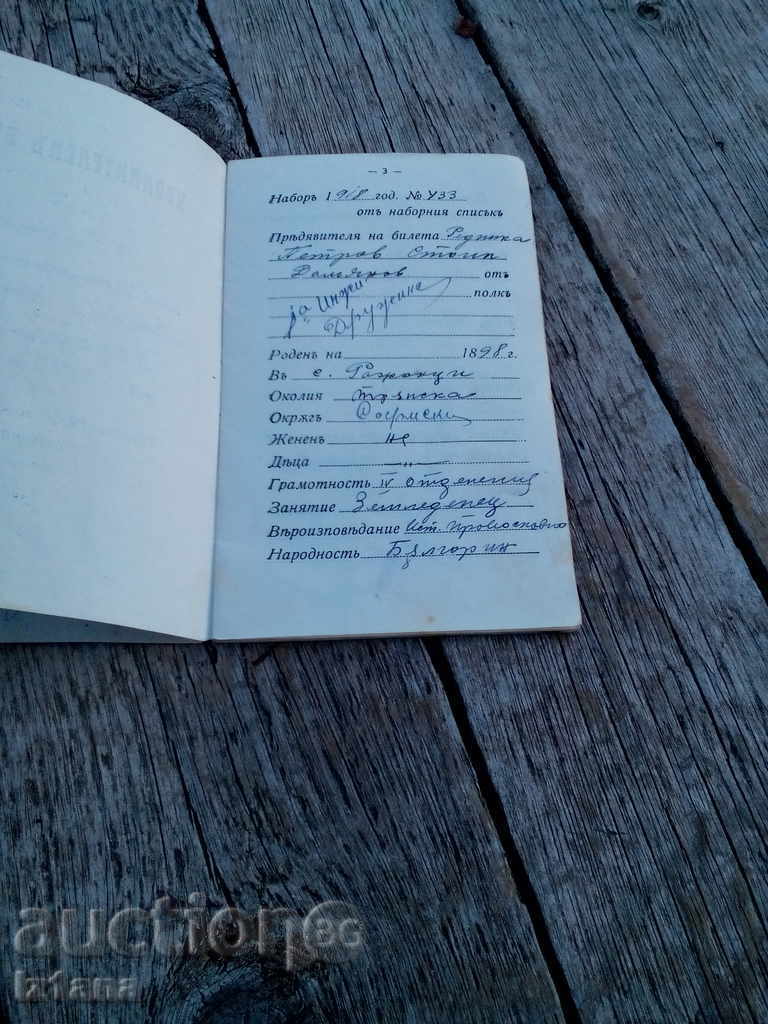 — 3 —
Наборъ 1918 год. № 433
отъ наборния списъкъ
Прѣдявителя на билета Редника
Петров Стоил
отъ
1а Инжи полкъ
Дружина
Роденъ на 1898 г.
Въ с.
Околия Трънска
Окрѫгъ Софийски
Жененъ не
Дѣца — „ —
Грамотность IV отделение
Занятие Земледелец
Вѣроизповѣдание Ист. Православно
Народность Българин
auction BG
tatana